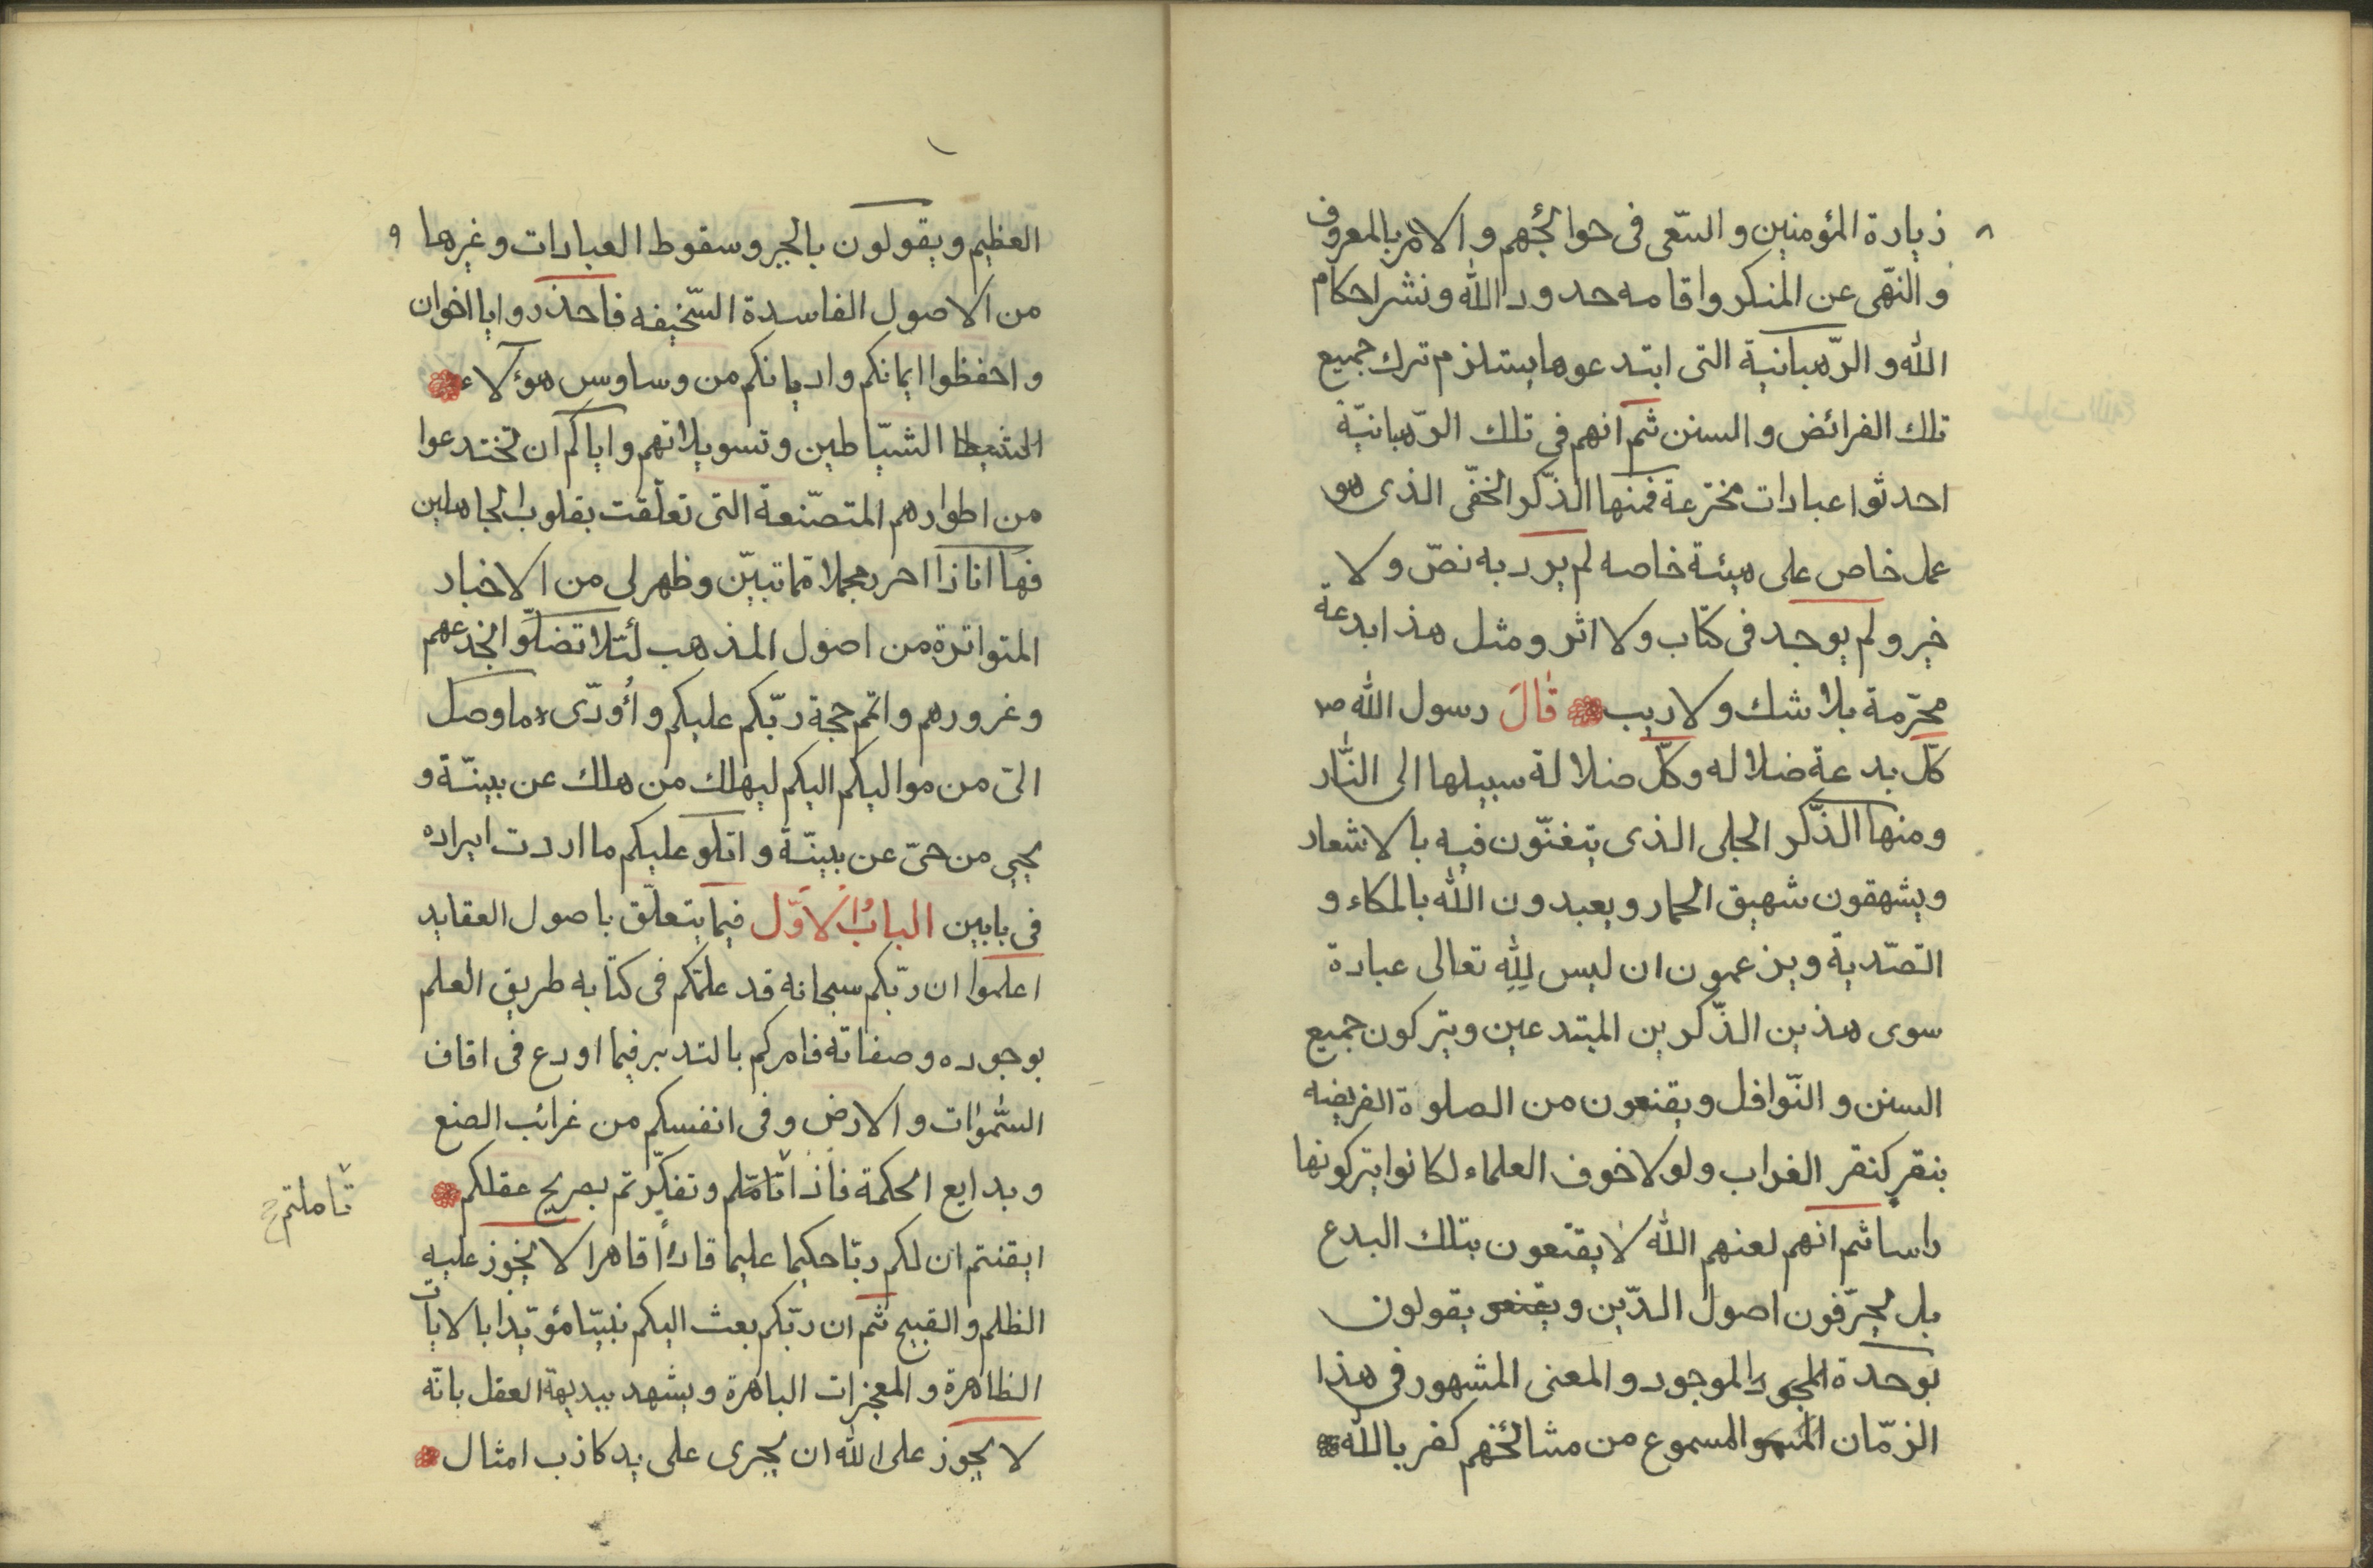 ۸
زيارة المؤمنين و السّعى فى حوائجهم و الامر بالمعروف
و النّهى عن المنكر و اقامه حدود الله و نشر احكام
الله و الرّهبانية التى ابتدعوها يستلزم ترك جميع
تلك الفرائض و السنن ثم انهم فى تلك الرّهبانيّة
احدثوا عبادات مخترعة فمنها الذّكر الخفّى الذى هو
عمل خاص على هيئة خاصه لم يرد به نصّ و لا
خبر و لم يوجد فى كتاب و لا اثر و مثل هذا بدعة
محرّمة بلا شك و لا ريب قالَ رسول الله ص
كلّ بدعة ضلاله و كلّ ضلالة سبيلها الى النّار
و منها الذّكر الجلى الذى يتغنّون فيه بالاشعار
و يشهقون شهيق الحمار و يعبدون الله بالمكاء و
التصّدية و يزعمون ان ليس لِلّهِ تعالى عبادة
سوى هذين الذّكرين المبتدعين و يتركون جميع
السنن و النّوافل و يقنعون من الصلوة الفريضه
بنقرٍ كنقر الغراب و لو لا خوف العلماء لكانوا يتركونها
راسا ثم انهم لعنهم الله لا يقنعون بتلك البدع
بل يحرّفون اصول الدّين و يقنعو يقولون
بوحدة الموجود و المعنى المشهور فى هذا
الزمّان المسموع من مشائخهم كفر بالله
۹
العظيم و يقولون بالجبر و سقوط العبادات و غيرها
من الاصول الفاسدة السّخيفه فاحذروا يا اخوان
و احفظوا ايمانكم و اديانكم من وساوس هؤلاء
الشّياطين و تسويلاتهم و اياكم ان تختدعوا
من اطوارهم المتصّنعة التى تعلّقت بقلوب الجاهلين
فها انا ذا احرر مجملا ممّا تبيّن و ظهر لى من الاخبار
المتواترة من اصول المذهب لئلا تضلّوا بخدعهم
و غرورهم و اتمم حجة ربّكم عليكم و أُودّى ما وصل
الىّ من مواليكم اليكم ليهلك من هلك عن بينّة و
يحيى من حىّ عن بينّة و اتلو عليكم ما اردت ايراده
فى بابين البابُ الاوّل فيما يتعلّق باصول العقايد
اعلموا ان ربّكم سبحانه قد علمّكم فى كتابه طريق العلم
بوجوده و صفاته فامركم بالتدبر فيما اودع فى افاق
السّموات و الارض و فى انفسكم من غرائب الصنع
و بدايع الحكمة فاذا تامّلم و تفكّرتم بصريح عقلكم
تاملتم ح
ايقنتم ان لكم ربّا حكيما عليما قادرا قاهرا لا يجوز عليه
الظلم و القبيح ثم ان ربّكم بعث اليكم نبيّا مؤيّدا بالايات
الظاهرة و المعجزات الباهرة و يشهد ببديهة العقل بانّه
لا يجوز على الله ان يجرى على يد كاذب امثال